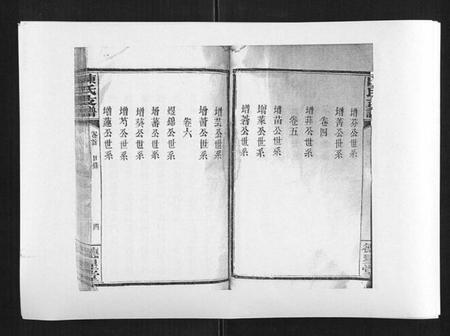 增芬公世系
增菁公世系
卷四
增菲公世系
卷五
增苗公世系
增萊公世系
增蓍公世系
增芸公世系
增莆公世系
卷六
煜錦公世系
增蕃公世系
增葵公世系
增芍公世系
增蓮公世系
陳氏支譜
卷首
目錄
四
德星堂